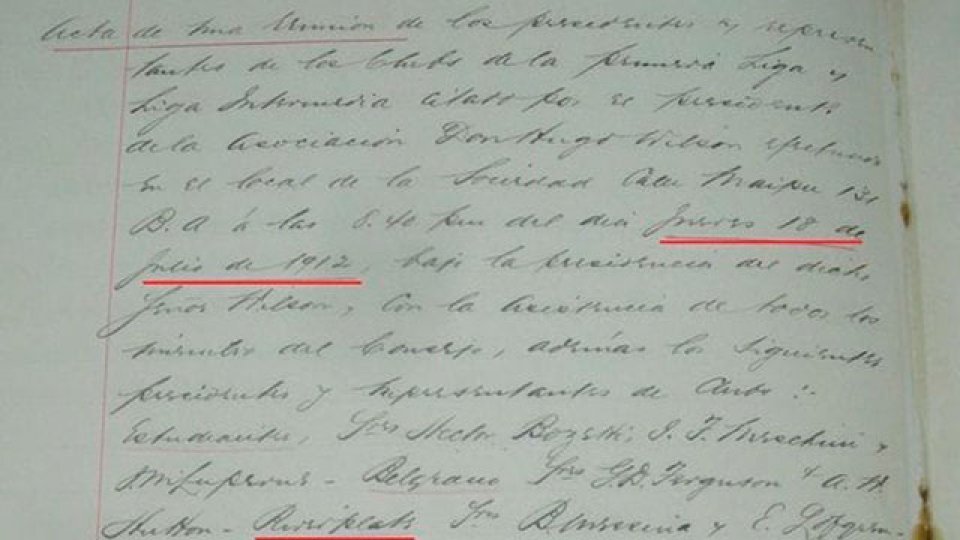 Acta de una reunion de los presidentes y represen
tantes de los Clubs de la primera Liga y
Liga Intermedia citado por el presidente
de la Asociación Don Hugo Wilson efectuada
en el local de la Sociedad Calle Maipu 131
B. A á las 8.40 pm del dia Jueves 18 de
Julio de 1912, bajo la presidencia del dicho
Señor Wilson, con la asistencia de todos los
miembro del Consejo, además los siguientes
presidentes y representantes de Clubs:-
Estudiantes, Sres Hector Bozetti, J. F.
Belgrano Sres G.D. Ferguson & A. H.
Hutton - River plate Sres B. Messina y E.